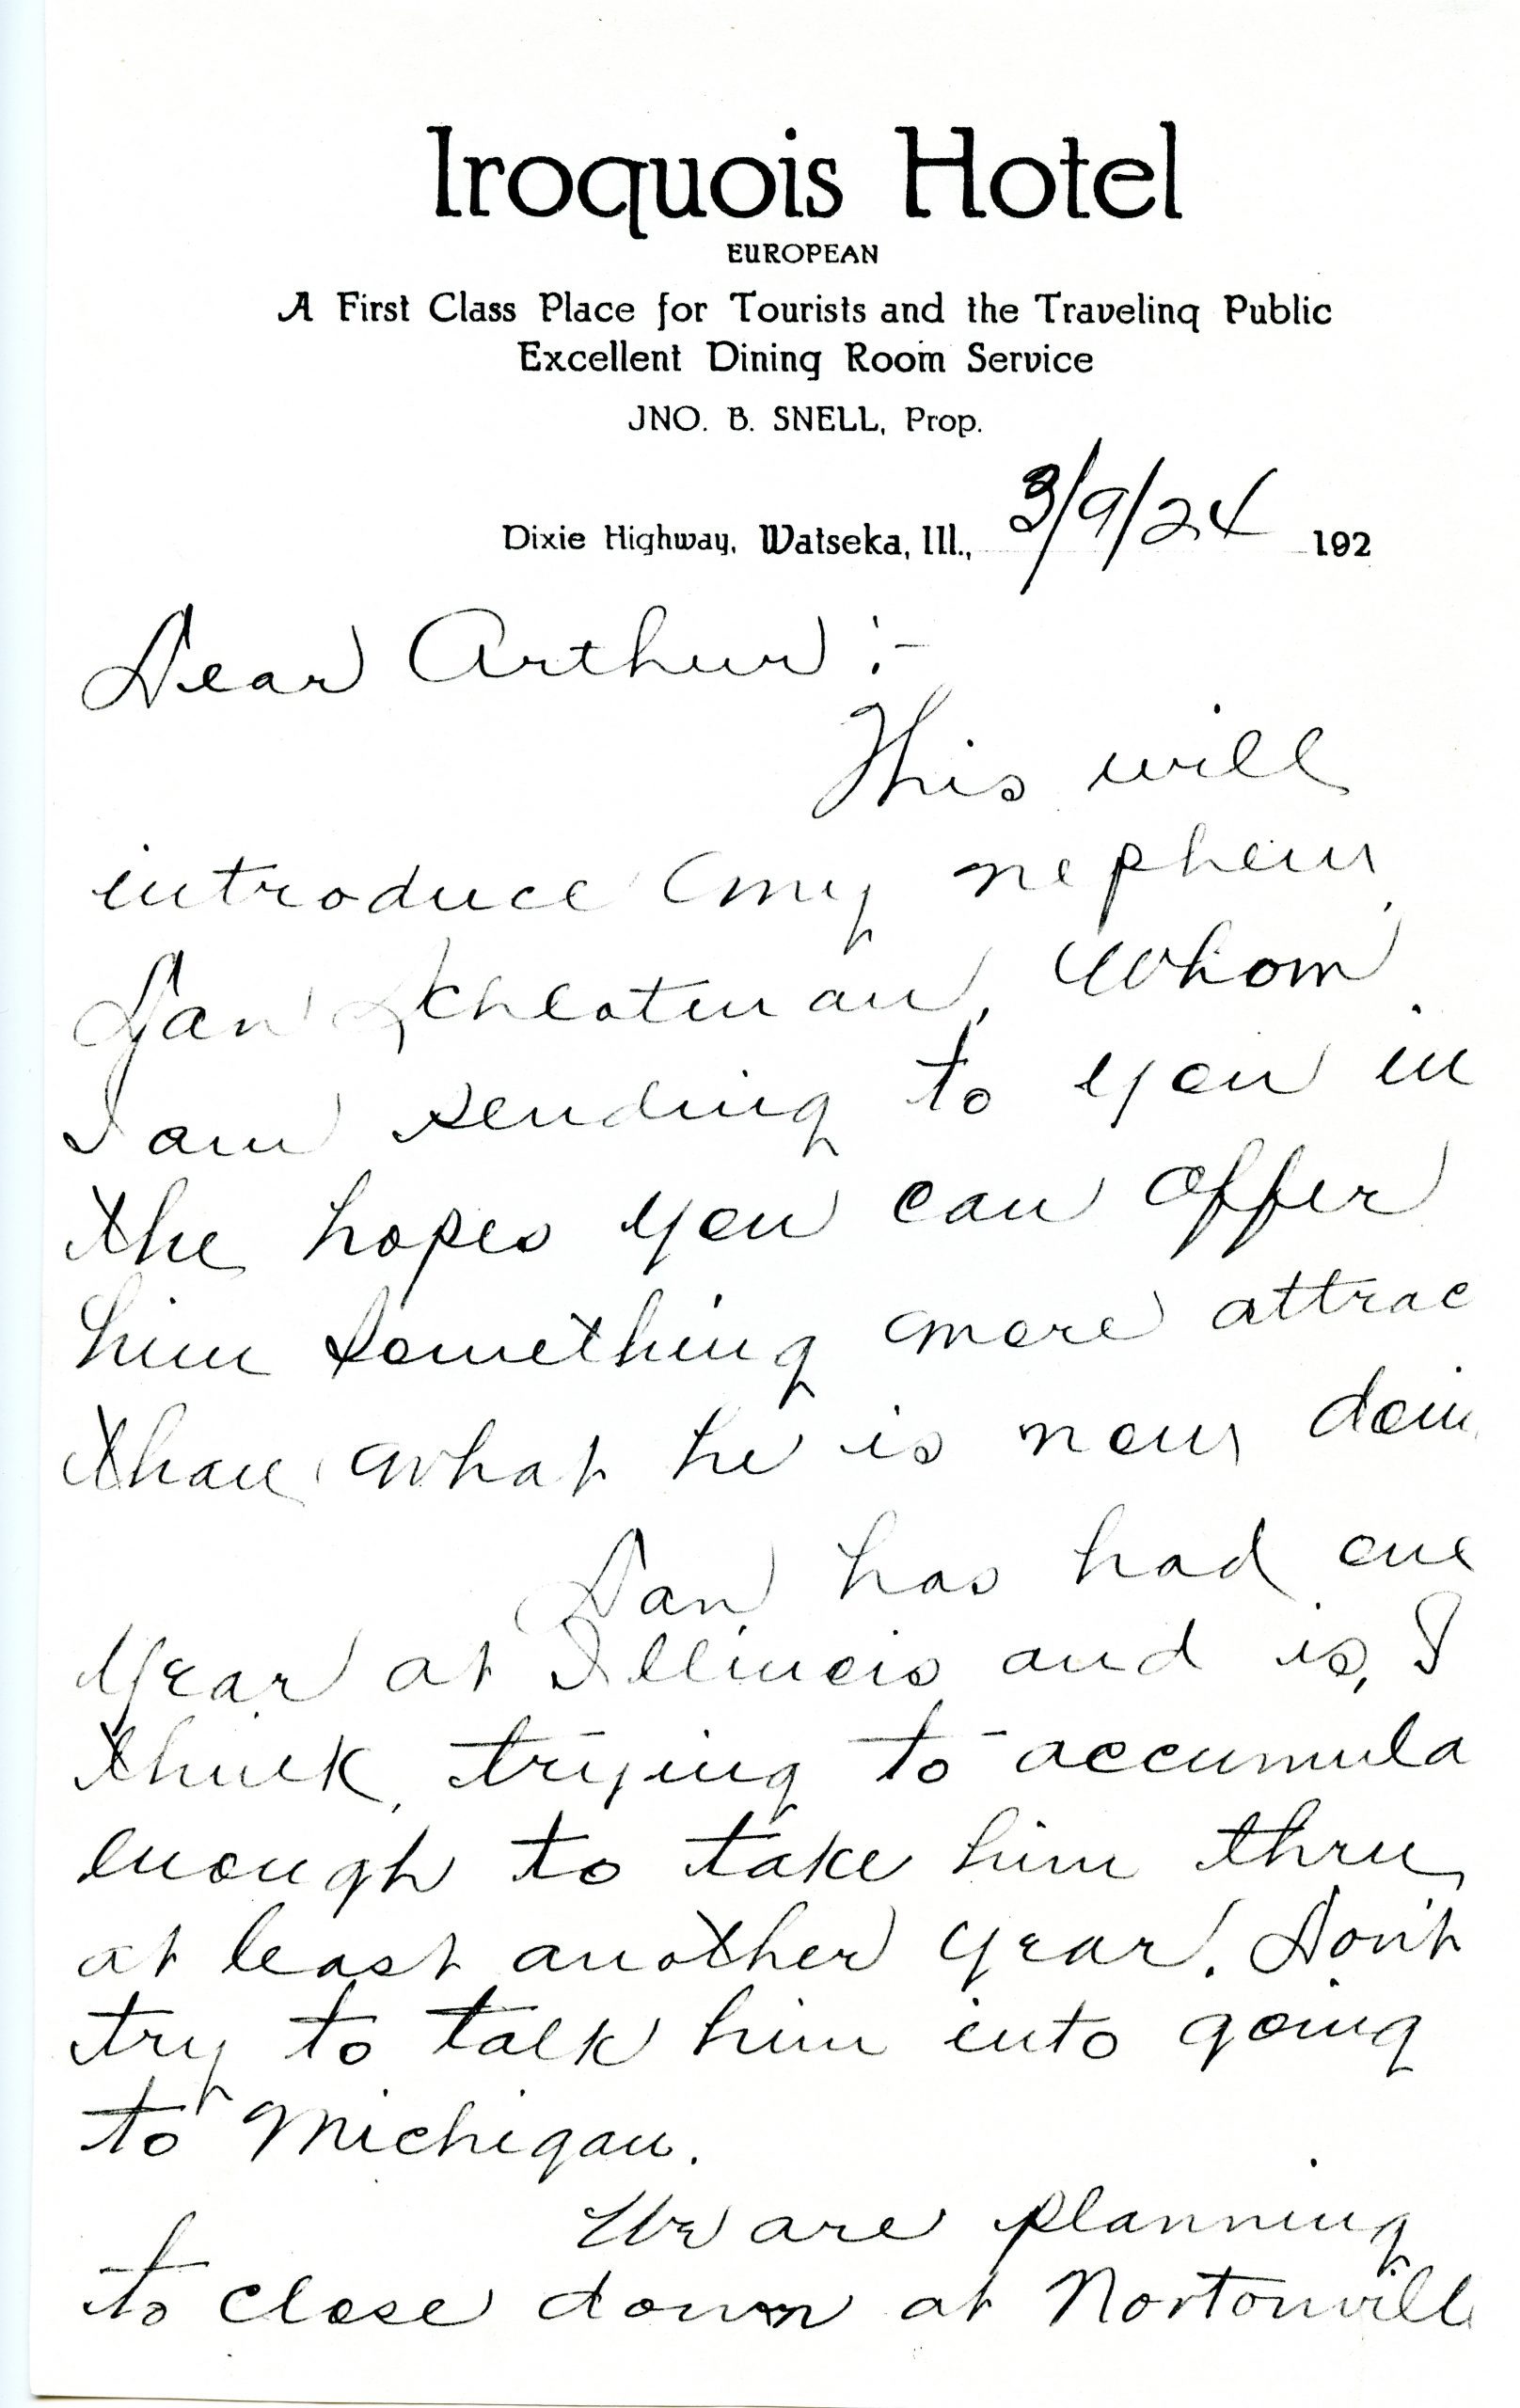 Iroquois Hotel
EUROPEAN
A First Class Place for Tourists and the Traveling Public
Excellent Dining Room Service
JNO. B. SNELL, Prop.
Dixie Highway, Watseka, Ill., 3/9/24 192
Dear Arthur :-
This will
introduce my nephew,
Dan whom
I am sending to you in
the hopes you can offer
him something more attrac
than what he is now doin
Dan has had one
year at Illinois and is, I
think, trying to accumula
enough to take him thru
at least another year. Don't
try to talk him into going
to Michigan.
We are planning
to close down at Nortonvill